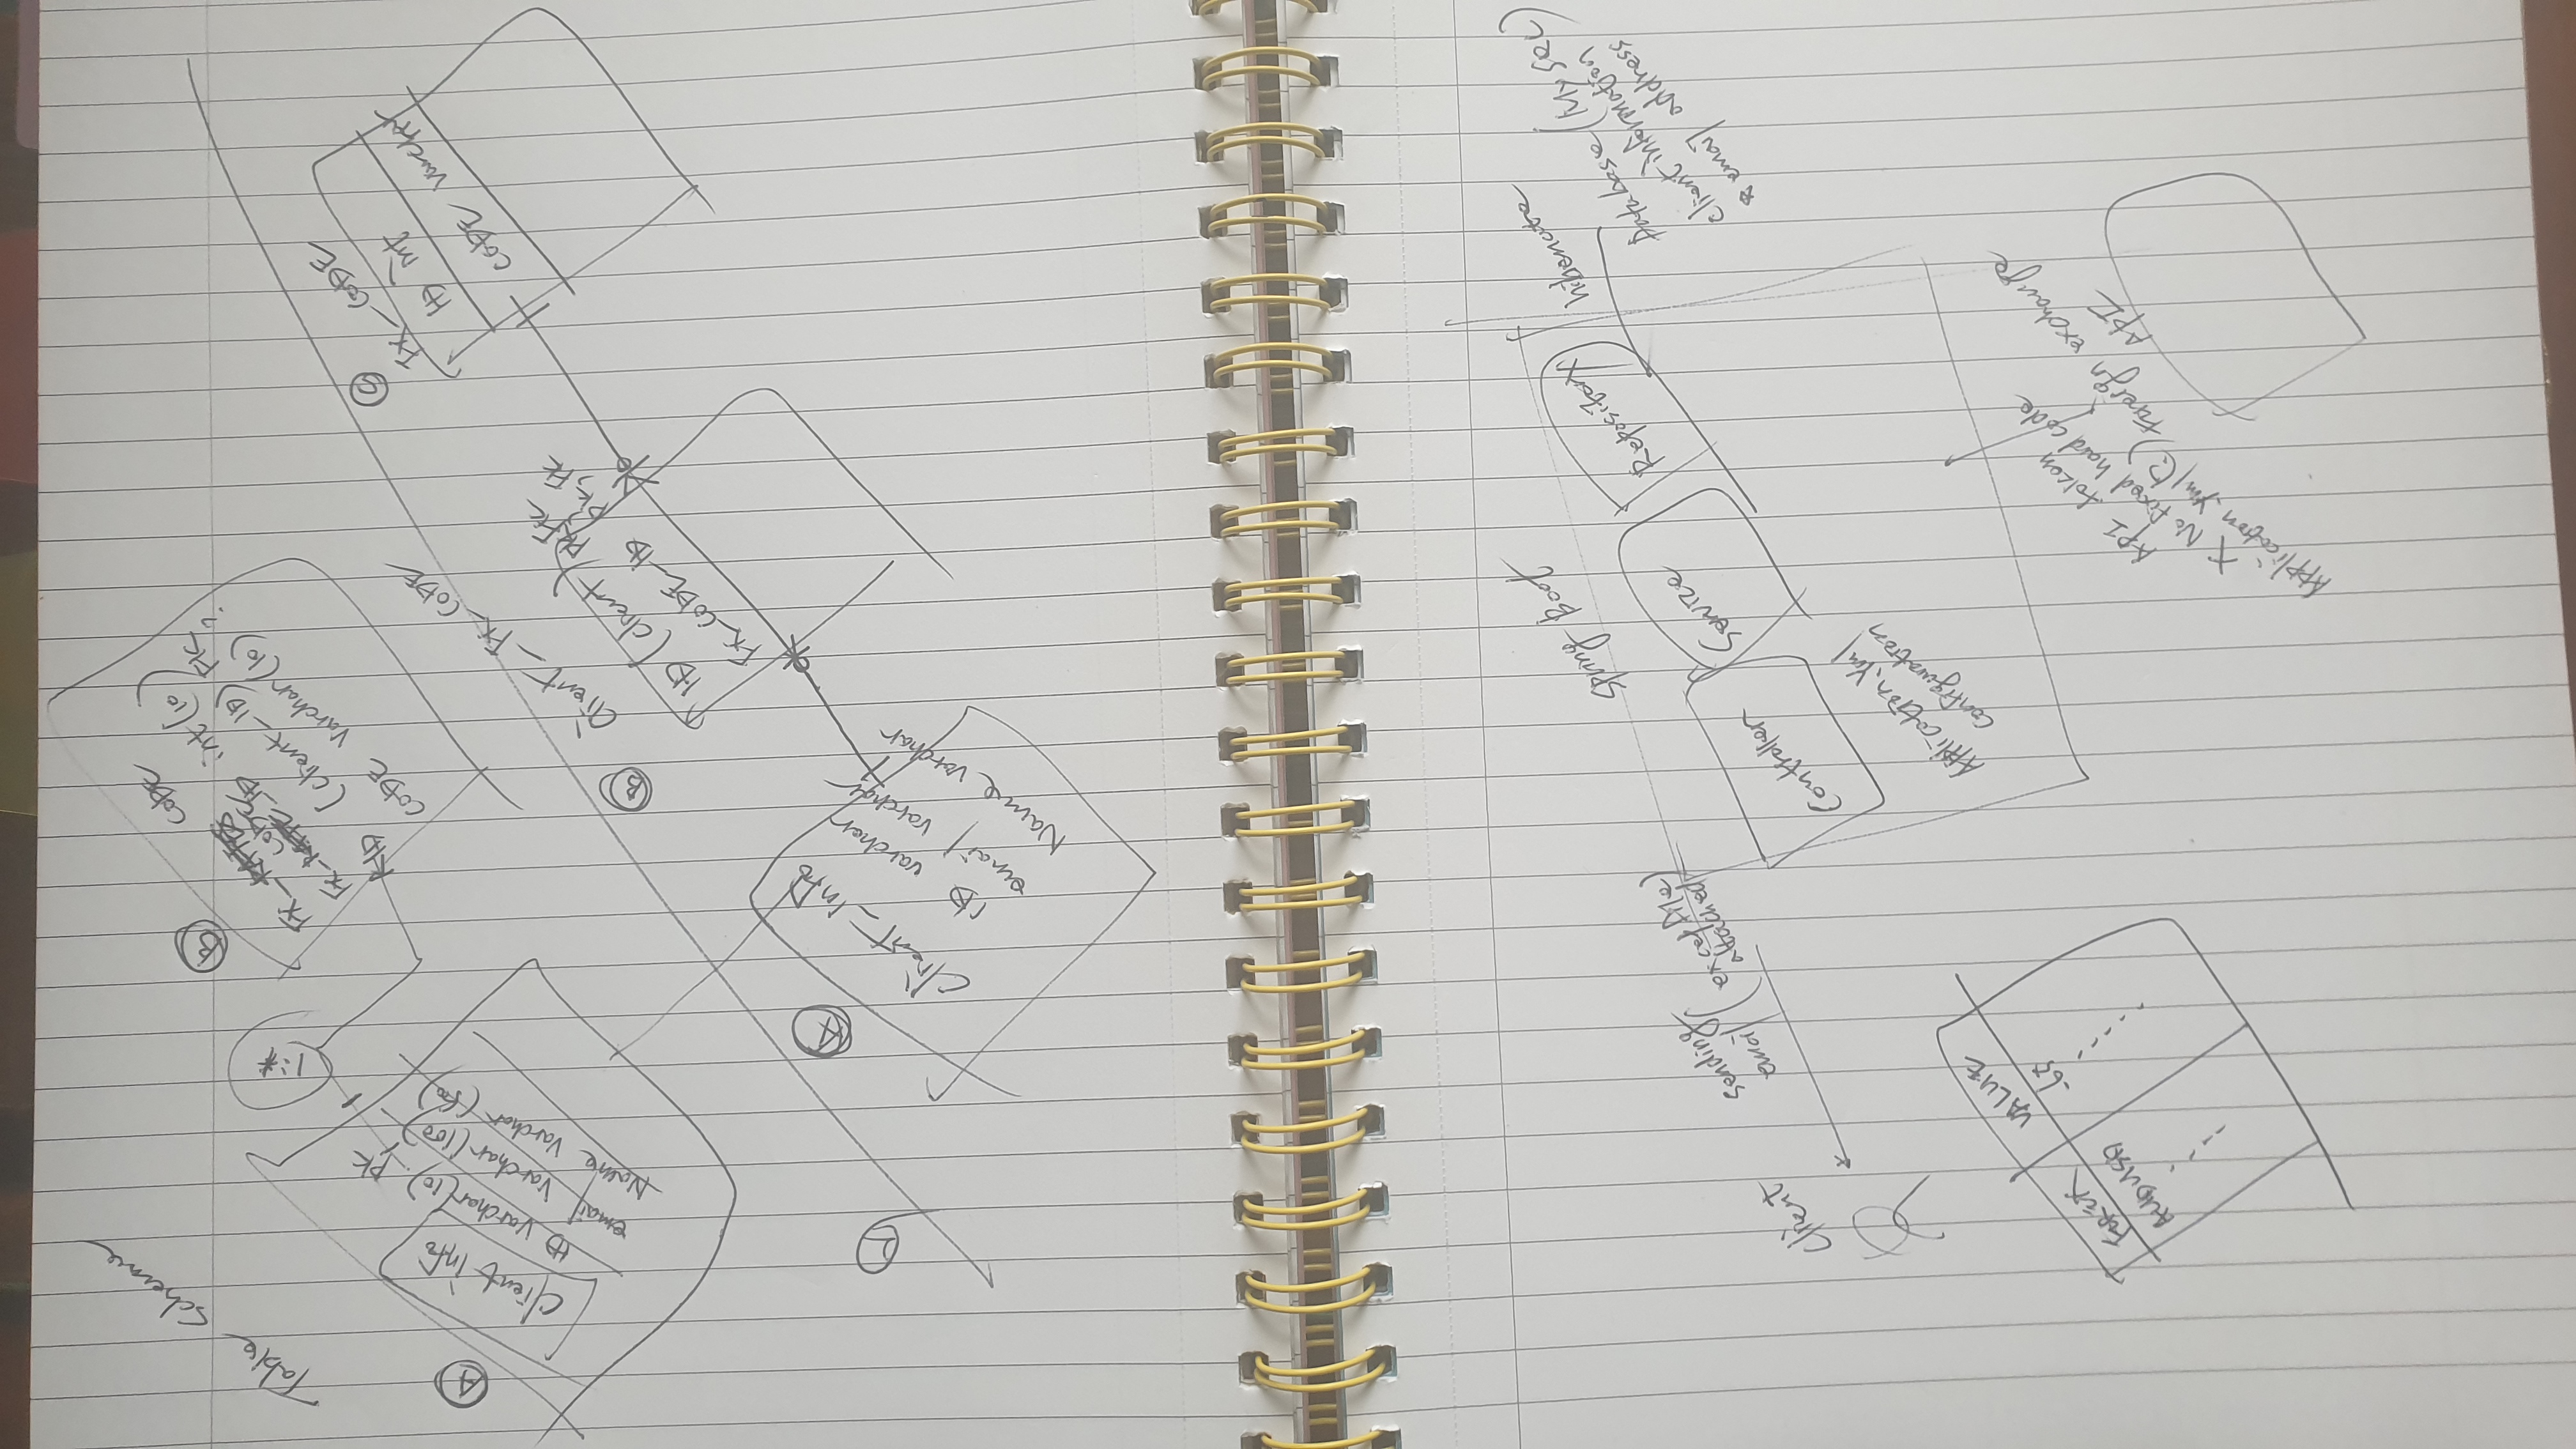 Table Scheme
A
Client info
ID varchar(10) PK
email varchar(100)
Name varchar(50)
1:*
B
Fx_ CODE
Fx_CODE_ID int(10)
(client_ID) FK
CODE varchar(10) ?
2
A
Client_info
ID varchar
email varchar
Name varchar
B
Client_Fx_CODE
ID (client) PK, FK
Fx_CODE_ID PK, FK
Fx_CODE
ID int
CODE varchar
Spring Boot
Controller
Service
Repository
hibenate
Database (MySQL)
client information
email address
Client
sending
email
(excel file)
attached
Application.yml
configuration
FOREX
VALUE
AUDUSD
.65
API token
X No fixed hard code
Application.yml(?)
Foreign exchange
API